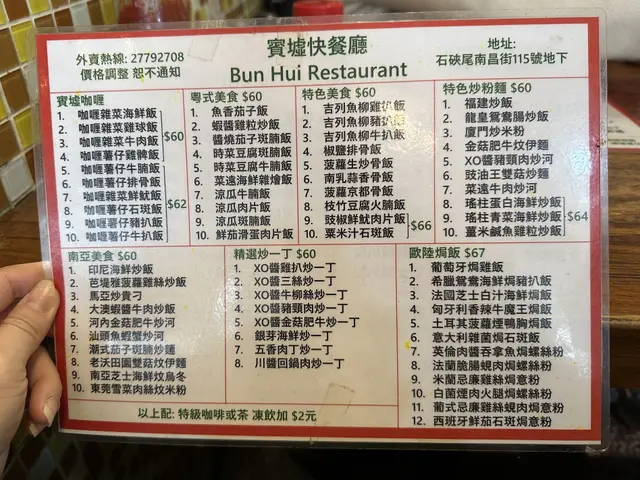 外賣熱線: 27792708
價格調整 恕不通知
賓墟快餐廳
Bun Hui Restaurant
地址:
石硤尾南昌街115號地下
賓墟咖喱
1. 咖喱雜菜海鮮飯
2. 咖喱雜菜雞球飯
3. 咖喱雜菜牛肉飯
4. 咖喱薯仔雞髀飯
$60
5. 咖喱薯仔牛腩飯
6. 咖喱薯仔排骨飯
7. 咖喱雜菜鮮魷飯
8. 咖喱薯仔石斑飯
9. 咖喱薯仔豬扒飯
10. 咖喱薯仔牛扒飯
$62
粵式美食 $60
1. 魚香茄子飯
2. 蝦醬雞粒炒飯
3. 醬燒茄子斑腩飯
4. 時菜豆腐斑腩飯
5. 時菜豆腐牛腩飯
6. 菜遠海鮮雜燴飯
7. 涼瓜牛肉飯
8. 涼瓜肉片飯
9. 涼瓜斑腩飯
10. 鮮茄滑蛋肉片飯
特色美食 $60
1. 吉列魚柳雞扒飯
2. 吉列魚柳豬扒飯
3. 吉列魚柳牛扒飯
4. 椒鹽排骨飯
5. 菠蘿生炒骨飯
6. 南乳蒜香骨飯
7. 菠蘿京都骨飯
8. 枝竹豆腐火腩飯
9. 豉椒鮮魷肉片飯
10. 粟米汁石斑飯
$66
特色炒粉麵 $60
1. 福建炒飯
2. 龍皇鴛鴦腸炒飯
3. 廈門炒米粉
4. 金菇肥牛炆伊麵
5. XO醬豬頸肉炒河
6. 豉油王雙菇炒麵
7. 菜遠牛肉炒河
8. 瑤柱蛋白海鮮炒飯
9. 瑤柱青菜海鮮炒飯
10. 薑米鹹魚雞粒炒飯
$64
南亞美食 $60
1. 印尼海鮮炒飯
2. 芭堤雅菠蘿雞絲炒飯
3. 馬亞炒貴刁
4. 大澳蝦醬牛肉炒飯
5. 河內金菇肥牛炒河
6. 汕頭魚蝦蟹炒河
7. 潮式茄子斑腩炒麵
8. 老沃田園雙菇炆伊麵
9. 南亞芝士海鮮炆烏冬
10. 東莞雪菜肉絲炆米粉
精選炒一丁 $60
1. XO醬雞扒炒一丁
2. XO三絲炒一丁
3. XO牛柳絲炒一丁
4. XO醬豬頸肉炒一丁
5. XO醬金菇肥牛炒一丁
6. 銀芽海鮮炒一丁
7. 五香肉丁炒一丁
8. 川醬回鍋肉炒一丁
歐陸焗飯 $67
1. 葡萄牙焗雞飯
2. 希臘鴛鴦海鮮焗豬扒飯
3. 法國芝士白汁海鮮焗飯
4. 匈牙利香辣牛魔王焗飯
5. 土耳其菠蘿煙鴨胸焗飯
6. 意大利雜菌焗斑飯
7. 英倫肉醬吞拿魚焗螺絲粉
8. 法蘭脆腸蜆肉焗螺絲粉
9. 米蘭忌廉雞絲焗意粉
10. 白菌煙肉火腿焗螺絲粉
11. 葡式忌廉雞絲蜆肉焗意粉
12. 西班牙鮮茄石斑焗意飯
以上配: 特級咖啡或茶 凍飲加 $2元